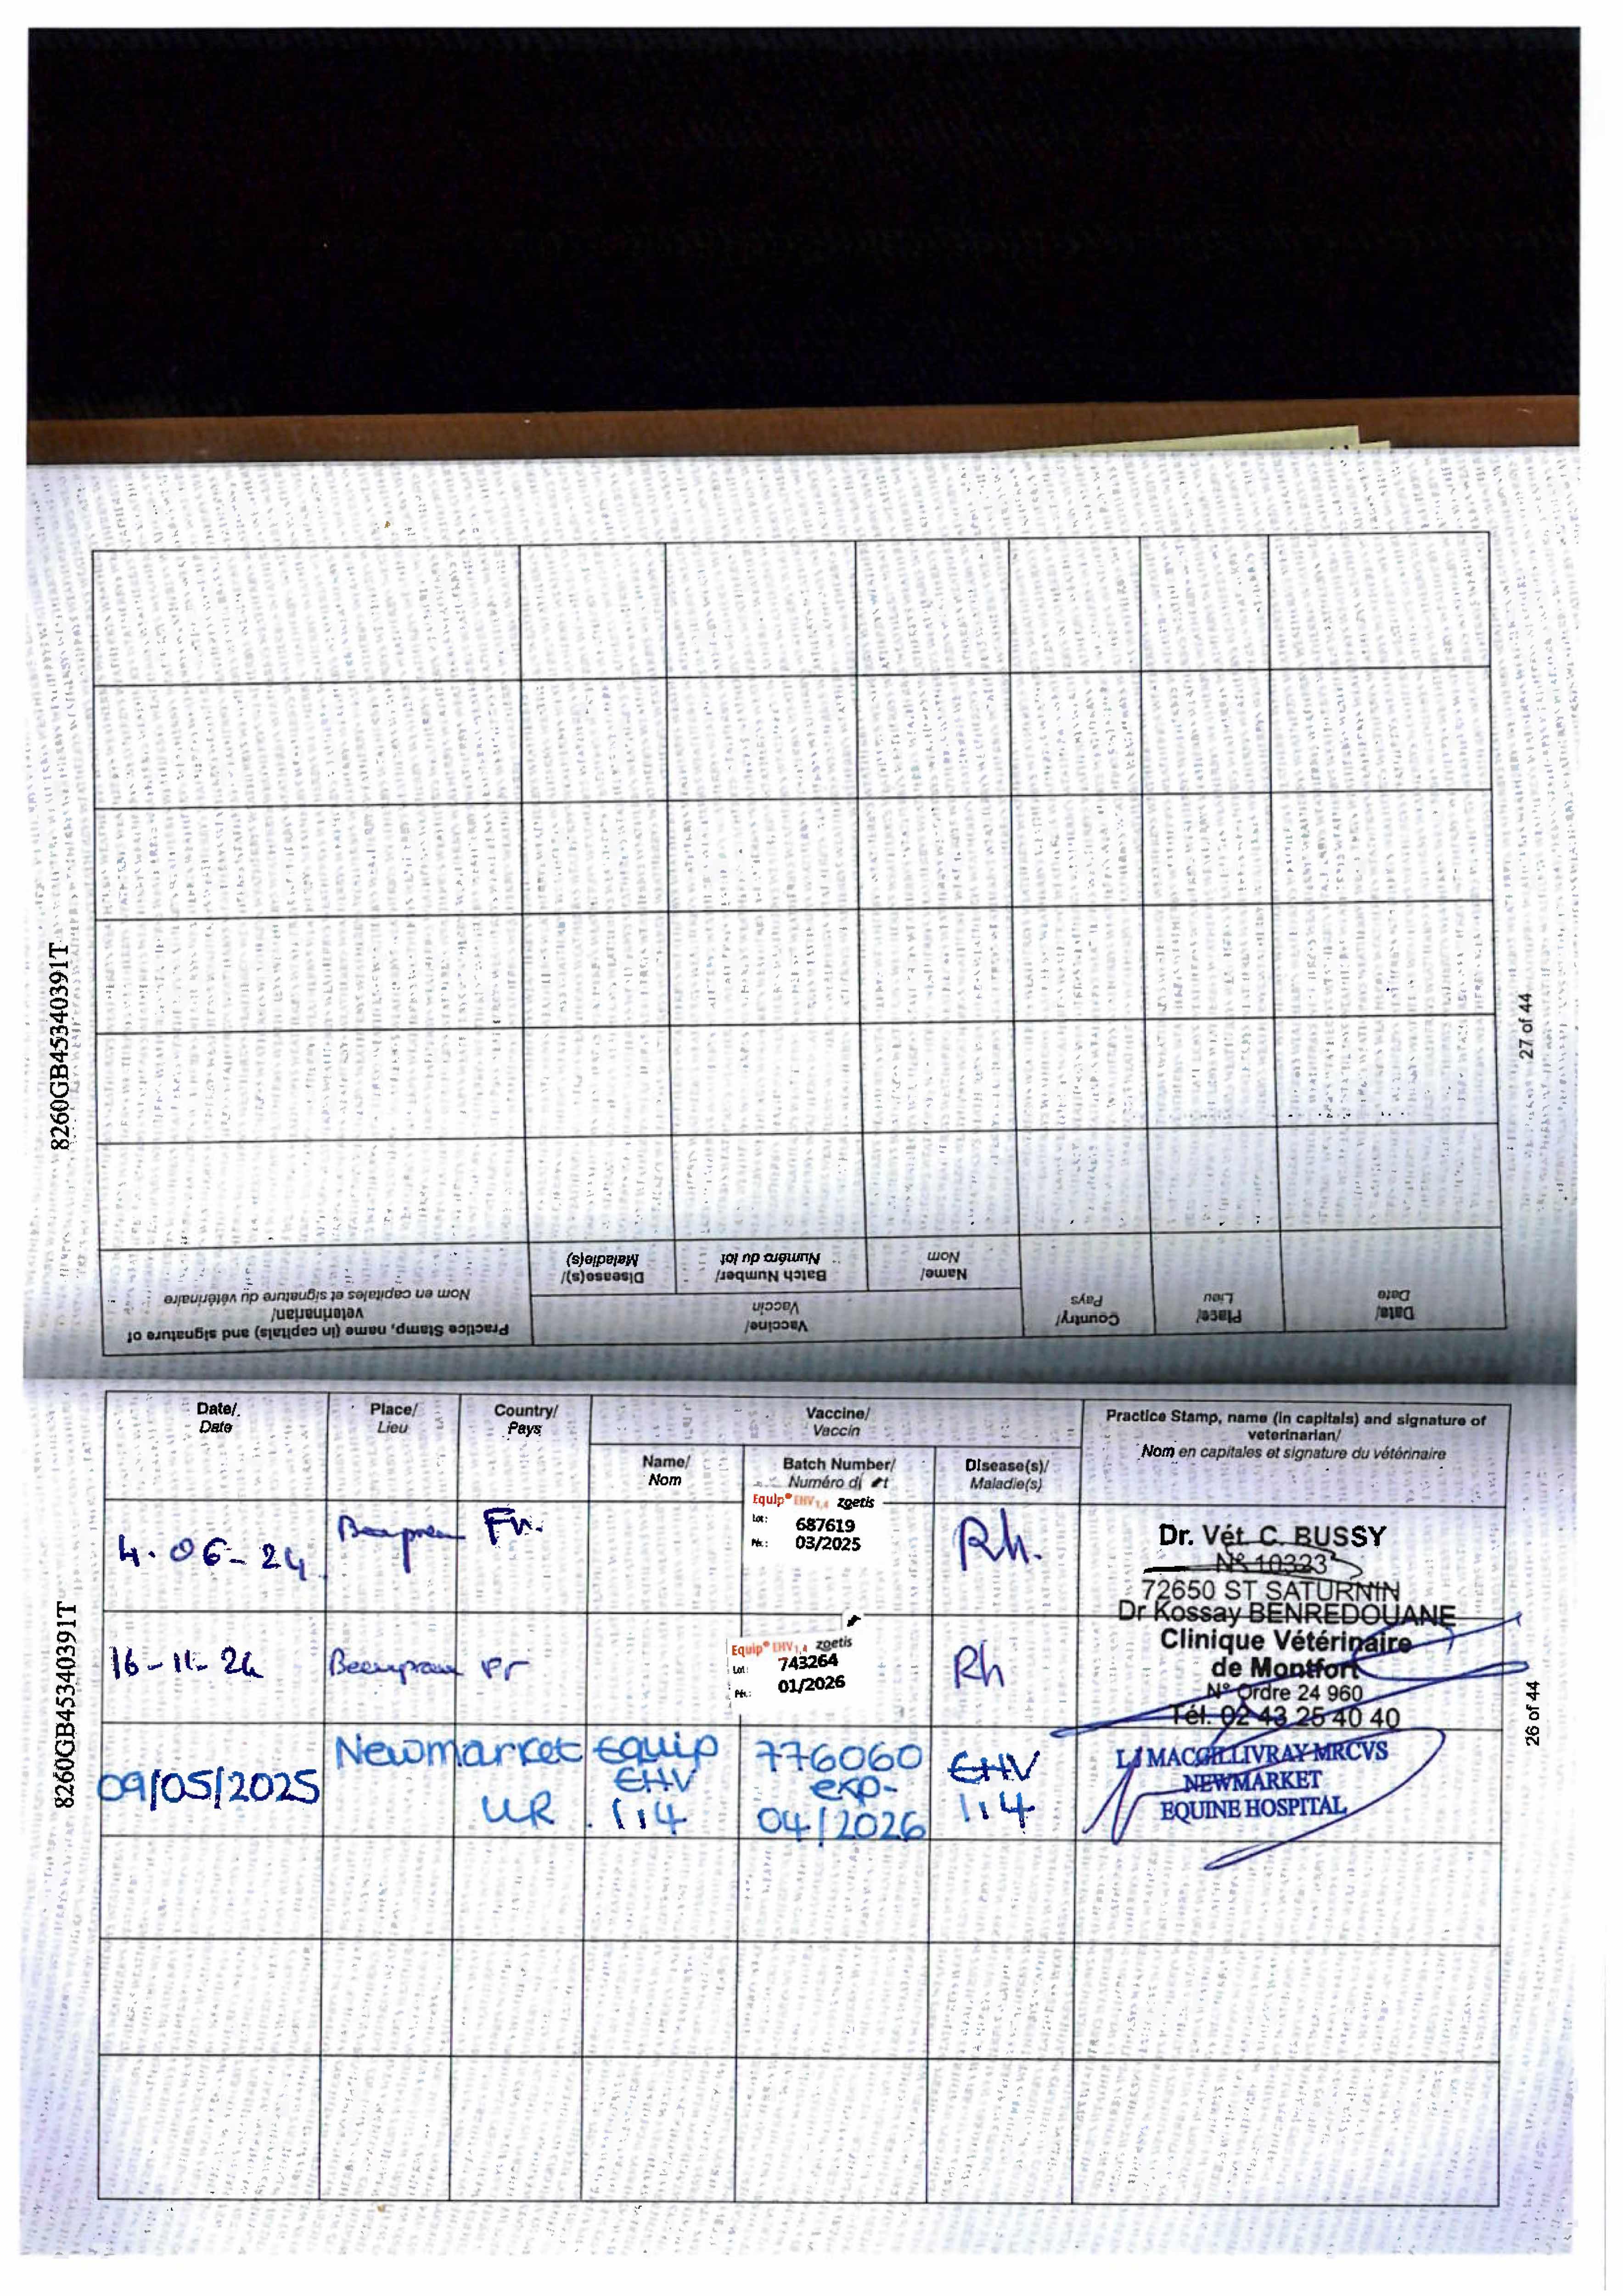 8260GB45340391T
27 of 44
Practice Stamp, name (in capitals) and signature of veterinarian/
Nom en capitales et signature du vétérinaire
Vaccine/
Vaccin
Disease(s)/
Maladie(s)
Batch Number/
Numéro du lot
Name/
Nom
Country/
Pays
Place/
Lieu
Date/
Date
8260GB45340391T
26 of 44
Date/
Date
Place/
Lieu
Country/
Pays
Vaccine/
Vaccin
Practice Stamp, name (in capitals) and signature of
veterinarian/
Nom en capitales et signature du vétérinaire
Name/
Nom
Batch Number/
Numéro
Disease(s)/
Maladie(s)
4.06-24
Fr.
Equip EHV 1,4 zoetis
Lot: 687619
03/2025
Rh.
Dr. Vét. C. BUSSY
N° 10323
72650 ST SATURNIN
16-11-24
Fr
Equip EHV 1,4 zoetis
Lot: 743264
01/2026
Rh
Dr Kossay BENREDOUANE
Clinique Vétérinaire
de Montfort
N° Ordre 24 960
Tél. 02 43 25 40 40
09/05/2025
Newmarket
UK
Equip
EHV
1,4
776060
exp-
04/2026
EHV
1,4
LJ MACGILLIVRAY MRCVS
NEWMARKET
EQUINE HOSPITAL